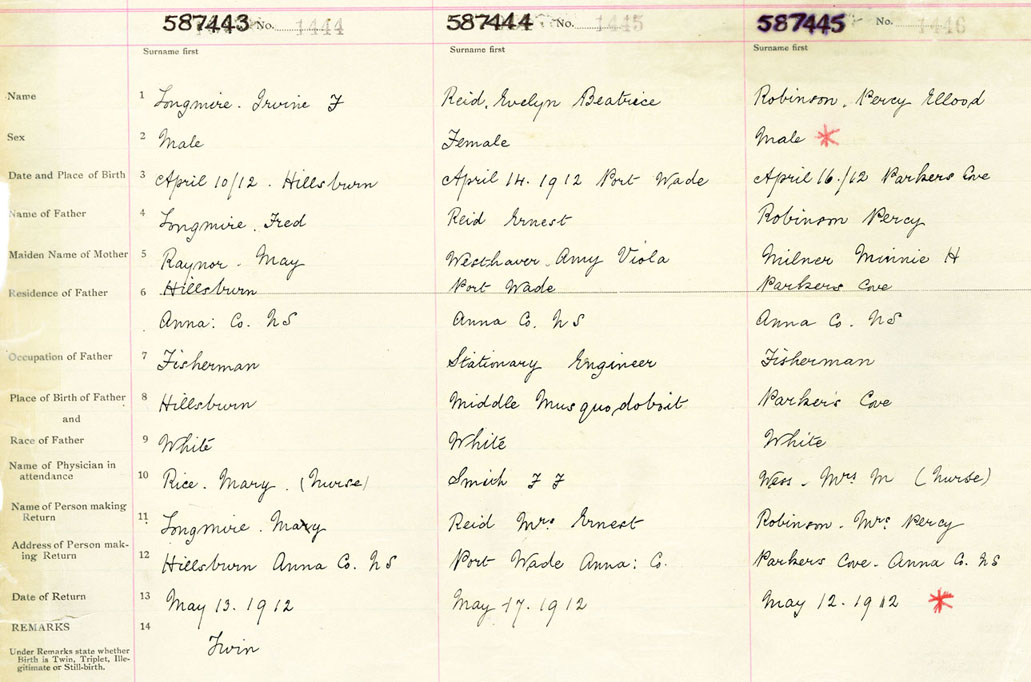 587443 No. 1444 587444 No. 1445 587445 No. 1446
Surname first Surname first Surname first
Name 1 Longmire. Irvine F Reid, Evelyn Beatrice Robinson, Percy Ellood
Sex 2 Male Female Male *
Date and Place of Birth 3 April 10/12. Hillsburn April 14. 1912 Port Wade April 16./12 Parkers Cove
Name of Father 4 Longmire. Fred Reid Ernest Robinson Percy
Maiden Name of Mother 5 Raynor. May Westhaver. Amy Viola Milner Minnie H
Residence of Father 6 Hillsburn Port Wade Parkers Cove
Anna: Co. NS Anna Co. NS Anna Co. NS
Occupation of Father 7 Fisherman Stationary Engineer Fisherman
Place of Birth of Father 8 Hillsburn Middle Musquodoboit Parkers Cove
and
Race of Father 9 White White White
Name of Physician in
attendance 10 Rice. Mary. (Nurse) Smith F F Mrs M (Nurse)
Name of Person making
Return 11 Longmire. May Reid Mrs Ernest Robinson. Mrs Percy
Address of Person mak-
ing Return 12 Hillsburn Anna Co. NS Port Wade Anna: Co. Parkers Cove. Anna Co. NS
Date of Return 13 May 13. 1912 May 17. 1912 May 12. 1912 *
REMARKS 14
Twin
Under Remarks state whether
Birth is Twin, Triplet, Ille-
gitimate or Still-birth.